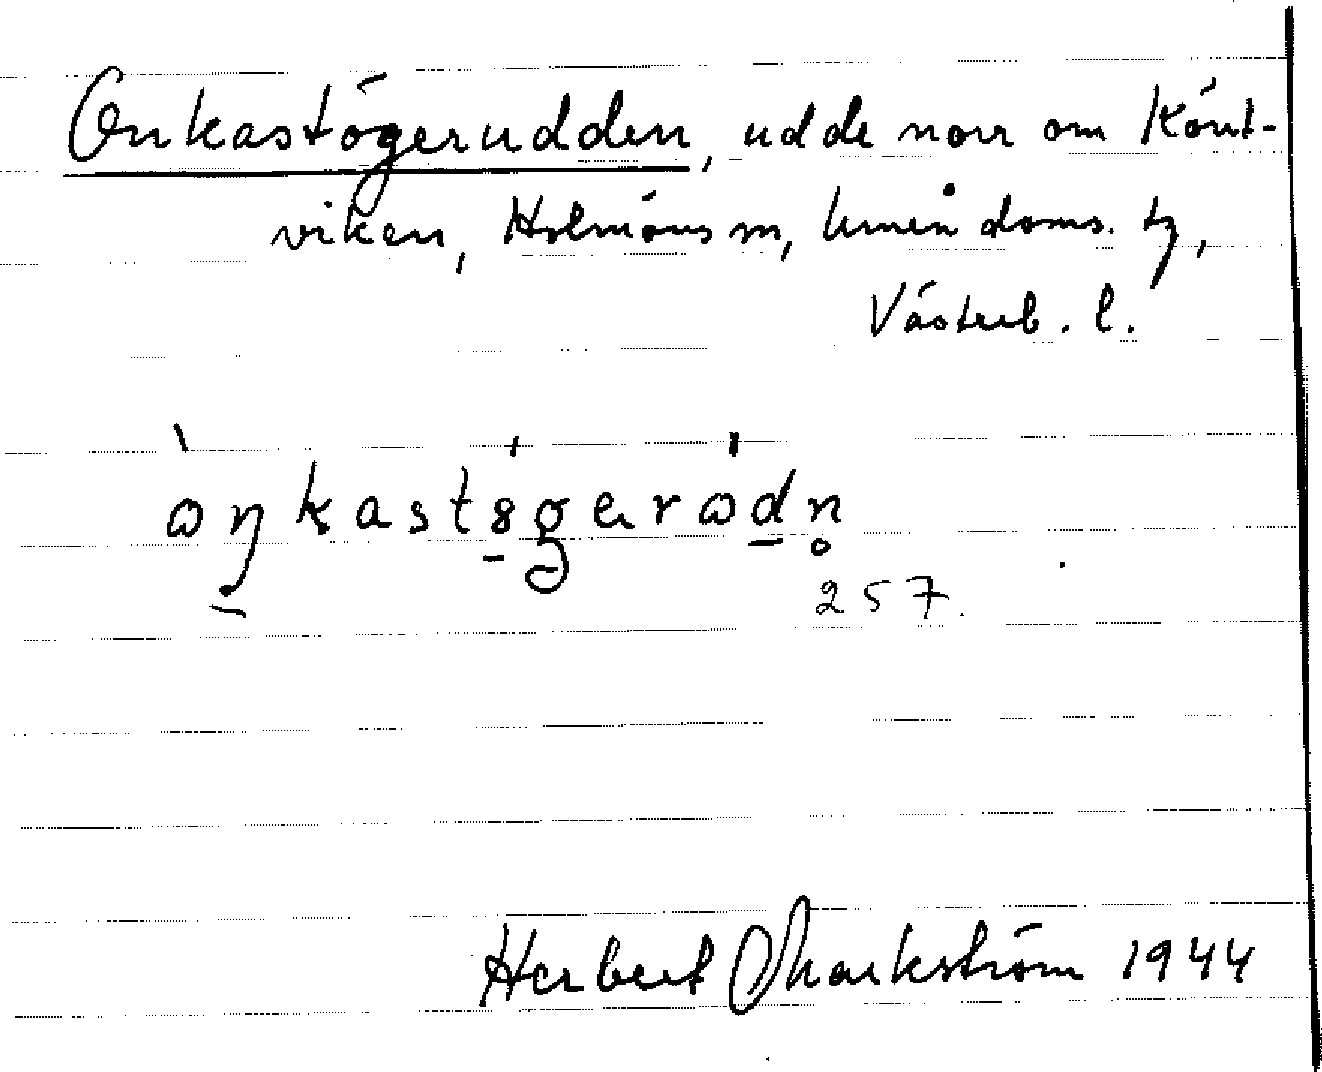 Onkastögerudden, udde norr om Könt-
viken, Holmöns sn, Umeå doms. tg,
Västerb. l.
ωŋkastögerωdn
257.
Herbert Markström 1944